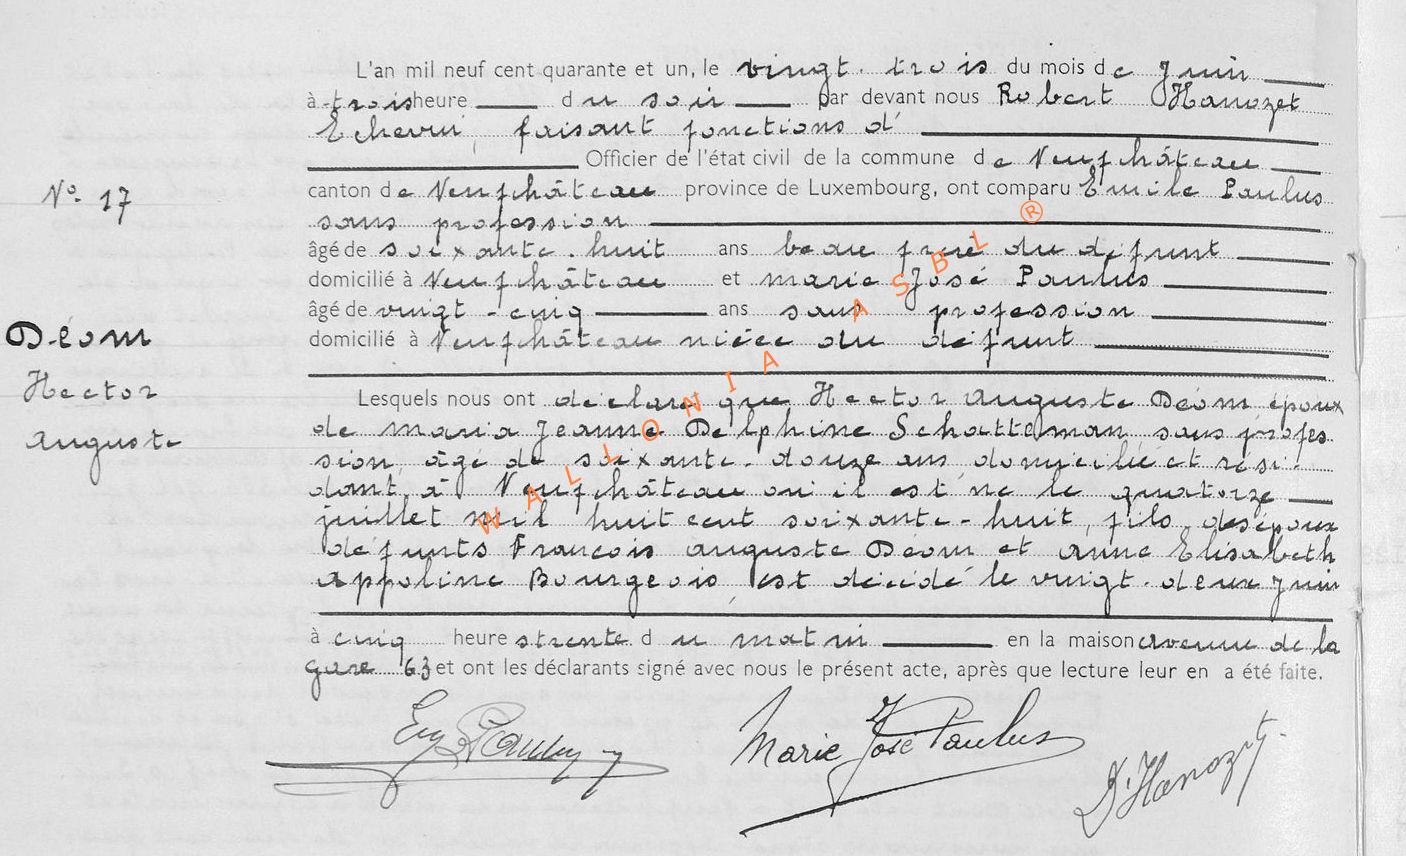 L'an mil neuf cent quarante et un, le vingt-trois du mois de Juin
à trois heure du soir par devant nous Robert Hanozet
Echevin, faisant fonctions d'
Officier de l'état civil de la commune de Neufchâteau
N° 17
canton de Neufchâteau province de Luxembourg, ont comparu Emile Paulus
sans profession
âgé de soixante-huit ans beau frère du défunt
domicilié à Neufchâteau et marie José Paulus
âgé de vingt-cinq ans sans profession
domicilié à Neufchâteau nièce du défunt
Déom
Hector
auguste
Lesquels nous ont déclaré que Hector auguste Déom, époux
de maria Jeanne Delphine Schatteman, sans profes
sion, âgé de soixante-douze ans, domicilié et rési-
dant à Neufchâteau où il est né le quatorze
juillet mil huit cent soixante-huit, fils des époux
défunts François auguste Déom et anne Elisabeth
appoline Bourgeois, est décédé le vingt-deux juin
à cinq heure s trente du matin en la maison avenue de la
gare 63 et ont les déclarants signé avec nous le présent acte, après que lecture leur en a été faite.
Marie José Paulus
WALLONIA ASBL ®